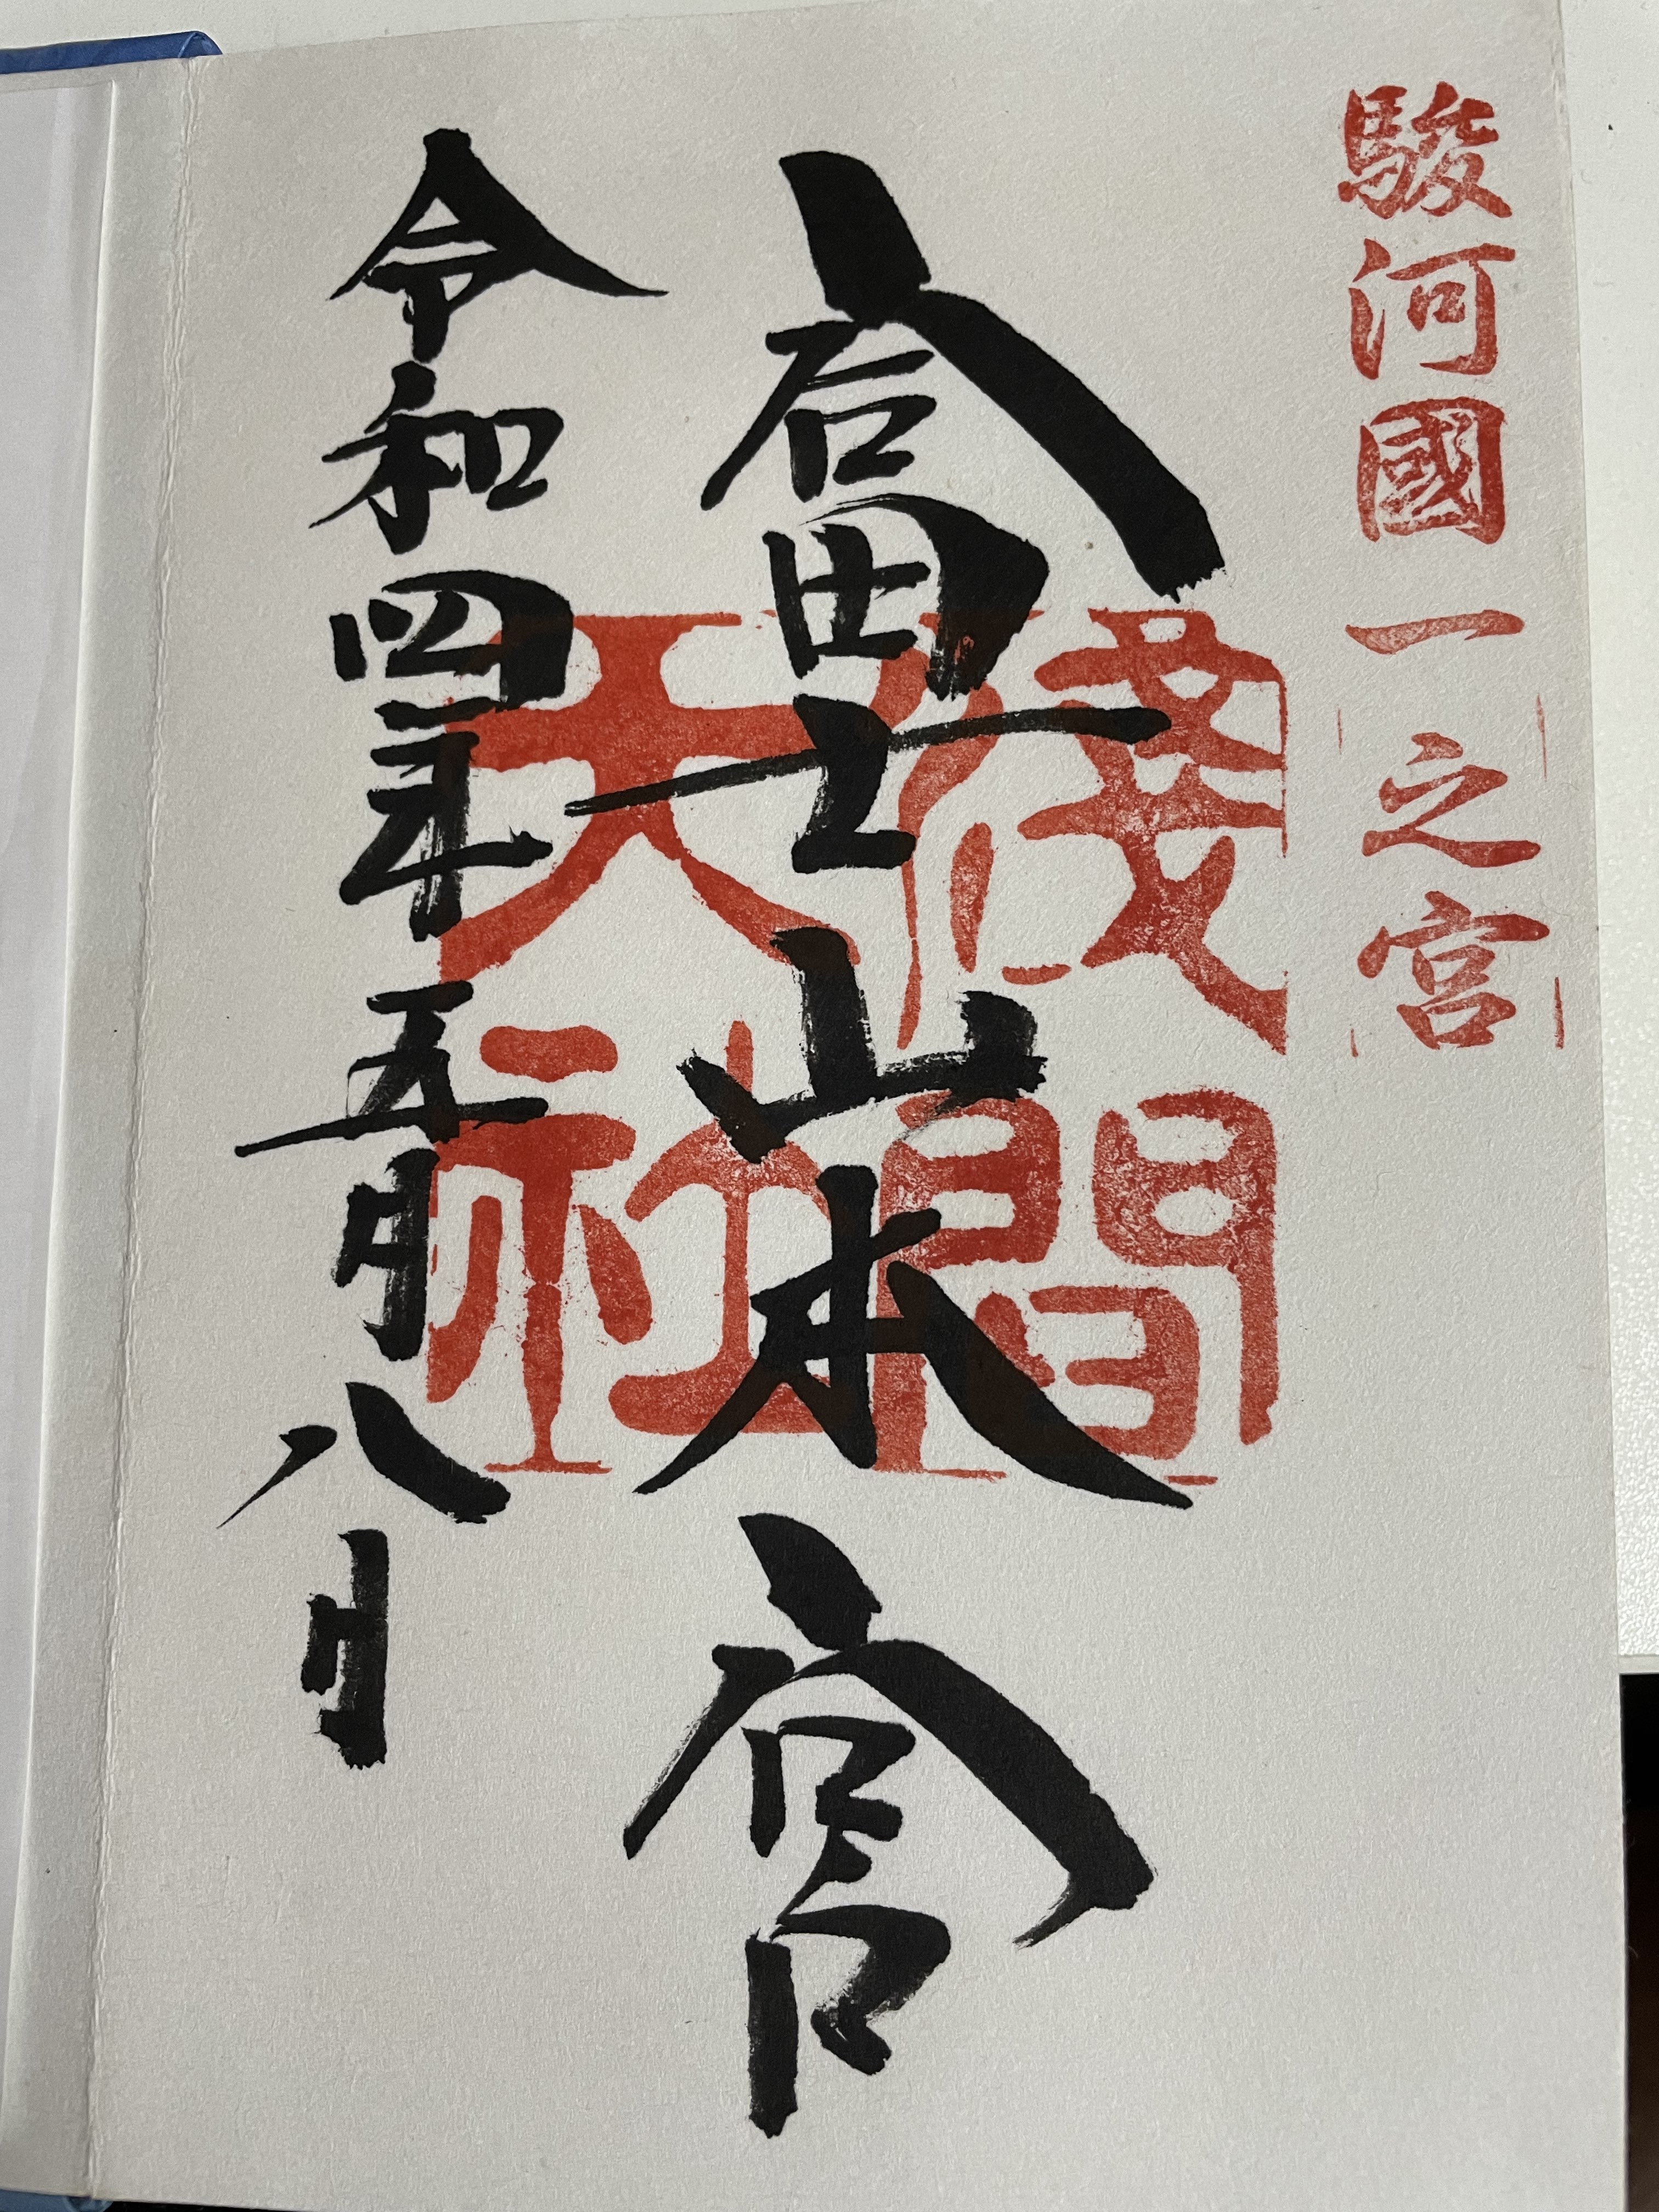 駿河國一之宮
富士山本宮
淺間大社
令和四年五月八日